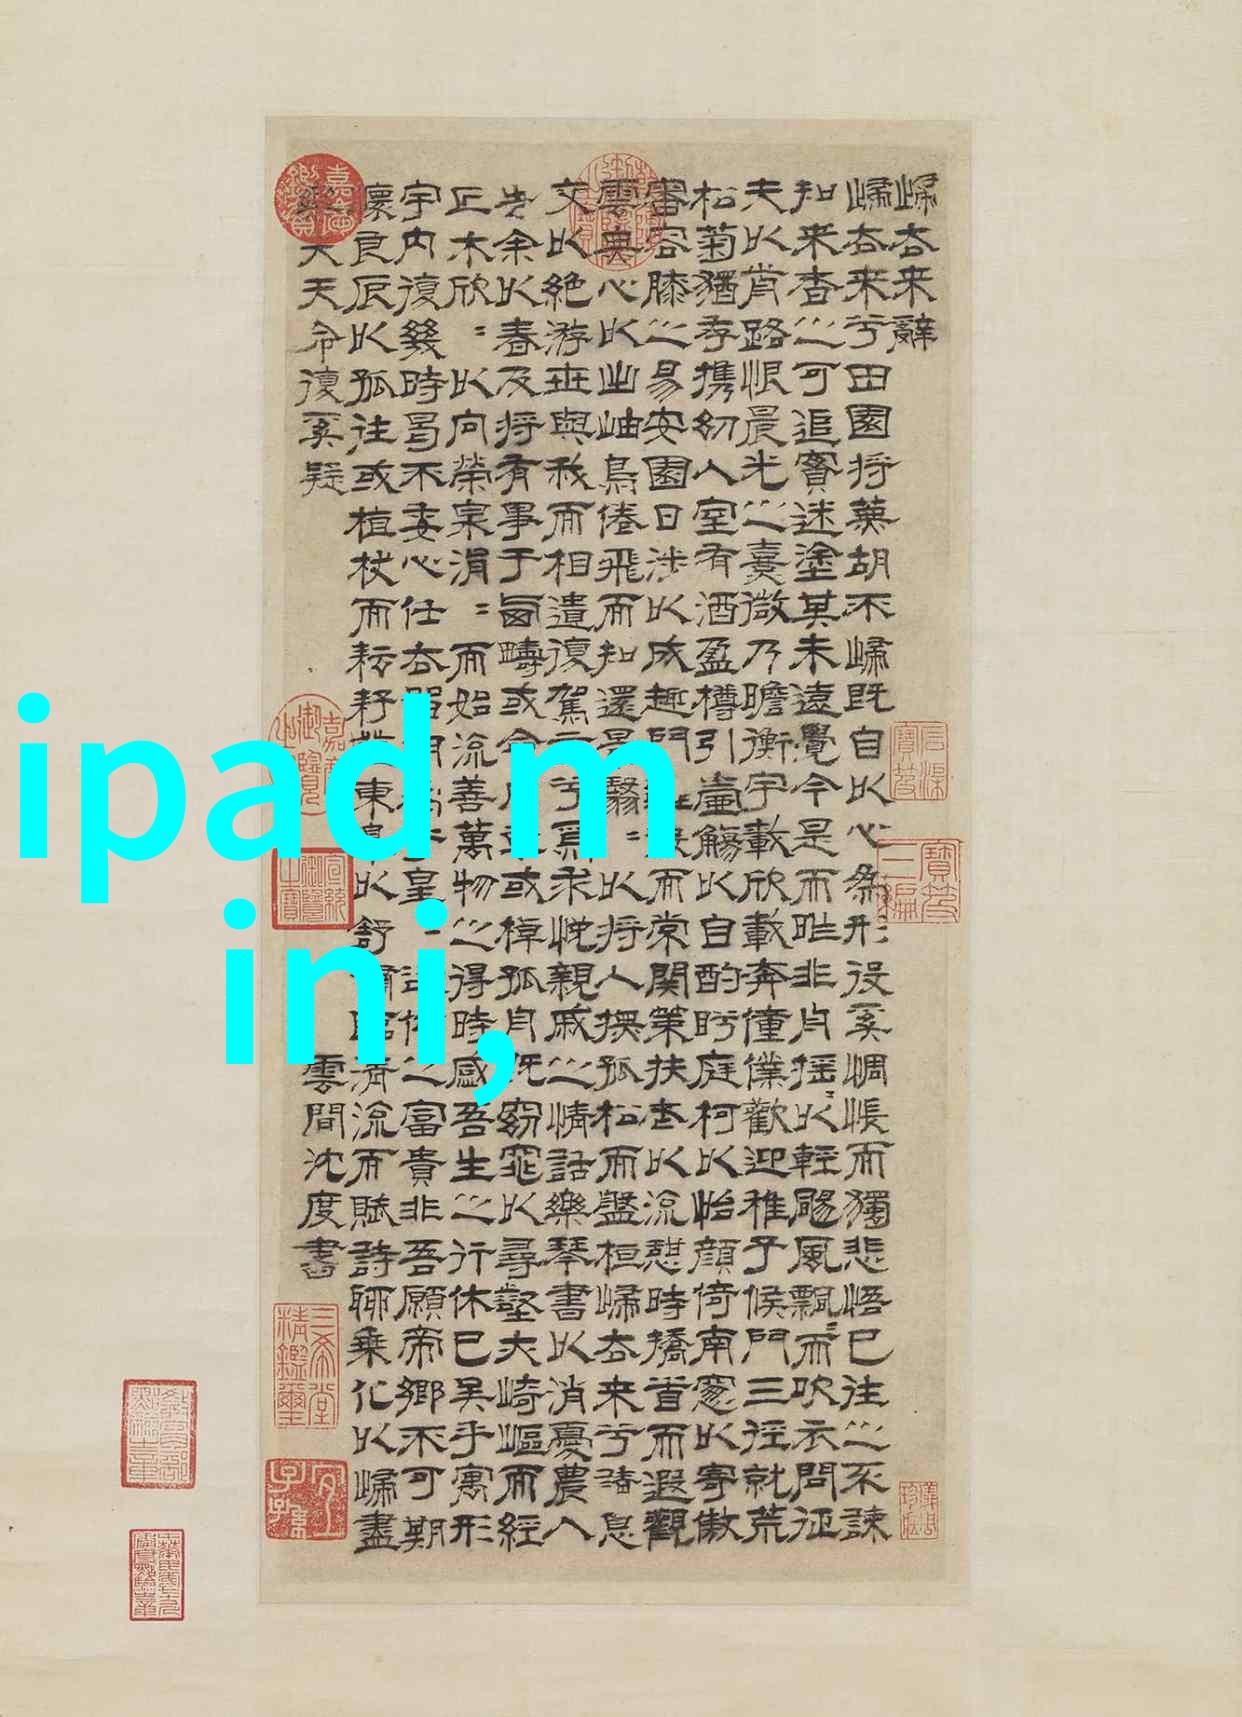 歸去来辭
歸去来兮田園将蕪胡不歸既自以心為形役奚惆悵而獨悲悟已往之不諫
知来者之可追實迷塗其未遠覺今是而昨非舟揺=以輕颺風飄=而吹衣問征
夫以前路恨晨光之熹微乃瞻衡宇載欣載奔僮僕歡迎稚子候門三徑就荒
松菊猶存携幼入室有酒盈樽引壺觴以自酌眄庭柯以怡顔倚南窓以寄傲
審容膝之易安園日涉以成趣門雖設而常関策扶老以流憩時撟首而遐觀
雲無心以出岫鳥倦飛而知還景翳=以将入撫孤松而盤桓歸去来兮請息
交以絶游世與我而相遺復駕言兮焉求悦親戚之情話樂琴書以消憂農人
告余以春及将有事于西疇或命巾車或棹孤舟既窈窕以尋壑夫崎嶇而經
丘木欣=以向榮泉涓=而始流善萬物之得時感吾生之行休已矣乎寓形
宇内復幾時曷不委心任去留胡為乎皇之富貴非吾願帝鄉不可期
懷良辰以孤往或植杖而耘耔登東皋以舒嘯臨清流而賦詩聊乗化以歸盡
樂夫天命復奚疑
雲間沈度書
ipad m
ini,